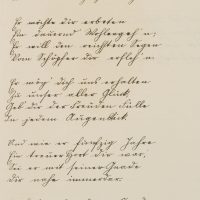 Er möchte dir erbeten
Ein dauernd Wohlergeh'n;
Er will den reichsten Segen
Vom Schöpfer dir erfleh'n.
Er mög' dich uns erhalten
Zu unser aller Glück,
Geb dir der Freuden Fülle
In jedem Augenblick.
Und wie er fünfzig Jahre
Ein treuer Hort dir war,
Sei er mit seiner Gnade
Dir nahe immerdar.